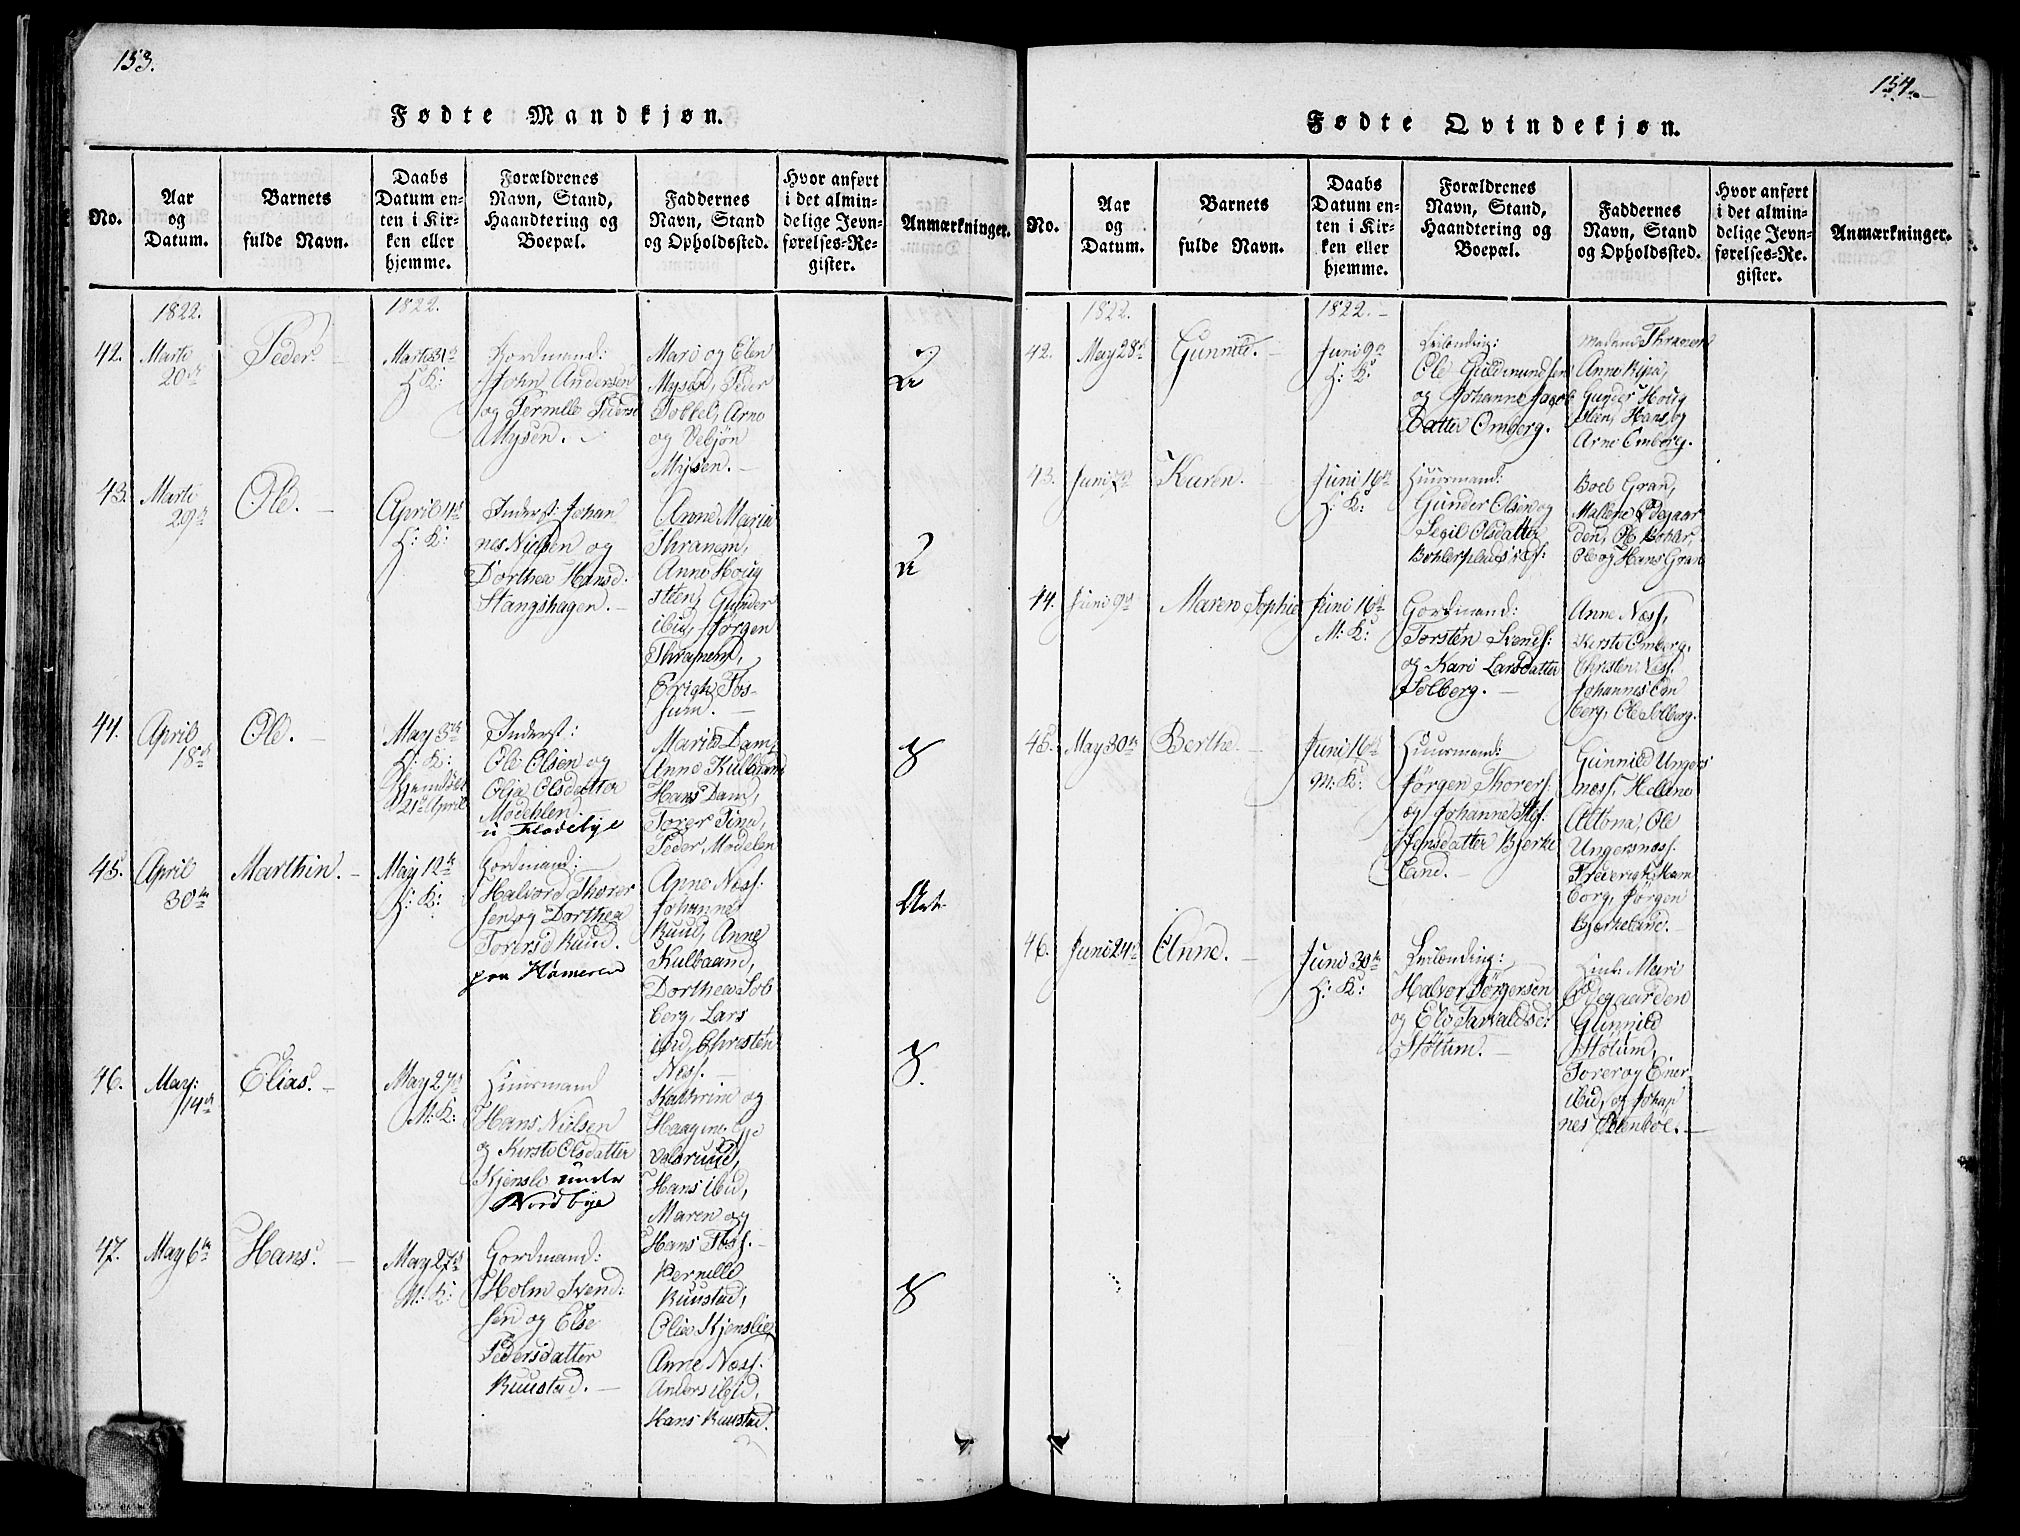 153.
Fødte Mandkjøn.
No.
Aar
og
Datum.
Barnets
fulde Navn.
Daabs
Datum en-
ten i Kir-
ken eller
hjemme.
Forældrenes
Navn, Stand,
Haandtering og
Boepæl.
Faddernes
Navn, Stand
og Opholdssted.
Hvor anført
i det almin-
delige Jevn-
førelses-Re-
gister.
Anmærkninger.
1822.
1822.
42.
Marti
20de
Peder
Marti 31te
H: K:
Gordmand:
John Andersen
og Pernille Peders
Mysen.
Mari og Elen
Mysen, Peder
Tobbel, Arne
og Vebjøn
Mysen.
43.
Marti
29de
Ole.
April
H: K:
Inderst: Johan
nes Nielsen og
Dorthea Hansd.
Stangshagen.
Anne Maria
Thranem,
Anne Houg
steen, Gunder
ibid, Jørgen
Thranem,
Erigh Fos-
sum.
44.
April
18de
Ole.
May
H: K:
Hjemdøbt
21de April
Inderst:
Ole Olsen og
Olia Olsdatter
Modehlen.
u Flødebye
Maria Dam,
Anne Kulbaand
Hans Dam,
Torer
Peder Modelen
45.
April
30te
Marthin.
May 12te
H: K:
Gordmand:
Halvord Thorer
sen og Dorthea
Torersd Ruud.
paa Hameren
Anne Næss.
Johanne
Ruud, Anne
Kulbaand,
Dorthea Sol
berg, Lars
ibid, Christen
Næss.
46.
May:
14de
Elias.
May 27de
M: K:
Huusmand
Hans Nielsen
og Kirsti Olsdatter
Kjensli under
Nordbye
Kathrine og
Haagine
Hans ibid,
Maren og
Hans Foss.
47.
May 6te
Hans.
May 27de
M: K:
Gordmand:
Holm Svend
sen og Else
Pedersdatter
Ruustad.
Pernille
Ruustad,
Olia Kjenslie
Anne Næss.
Anders ibid,
Hans Ruustad.
154.
Fødte Qvindekjøn.
No.
Aar
og
Datum.
Barnets
fulde Navn.
Daabs
Datum en-
ten i Kir-
ken eller
hjemme.
Forældrenes
Navn, Stand,
Haandtering og
Boepæl.
Faddernes
Navn, Stand
og Opholdssted.
Hvor anført
i det almin-
delige Jevn-
førelses-Re-
gister.
Anmærkninger.
1822.
1822.
42.
May 28de
Juni 9de
H: K:
Leilænding:
Ole Guldmundsen
og Johanne Jacob
Datter Omberg.
Madame Thranem
Anne
Gunder Houg
steen, Hans og
Arne Omberg.
43.
Juni 7de
Karen.
Juni 16de
H: K:
Huusmand:
Gunder Olsen og
Segil Olsdatter
Bohlerplads
Boel Gran,
Mallene Ødegaar
den, Ole Bohler,
Ole og Hans Gran
44.
Juni 9de
Maren Sophie
Juni 16de
M: K:
Gordmand:
Torsten Svends:
og Kari Larsdatter
Solberg.
Anne Næss,
Kirsti Omberg.
Christen Næss.
Johannes Om
berg, Ole Solberg.
45.
May 30te
Berthe.
Juni 16de
M: K:
Huusmand:
Jørgen Thorers:
og Johanne
Jensdatter Bjerke
land.
Gunnild Ungers
næss. Hellene
Altona, Ole
Ungersnæss.
Frederigh Ham
borg, Jørgen
Bjerkeland.
46.
Juni 24de
Anne.
Juni 30te
H: K:
Leilænding:
Halvor Jørgensen
og Eli Tarvaldsd:
Støtum.
Mari
Ødegaarden
Gunnild
Støtum,
Torer og Ener
ibid, og Johan
nes Ødenbøl.